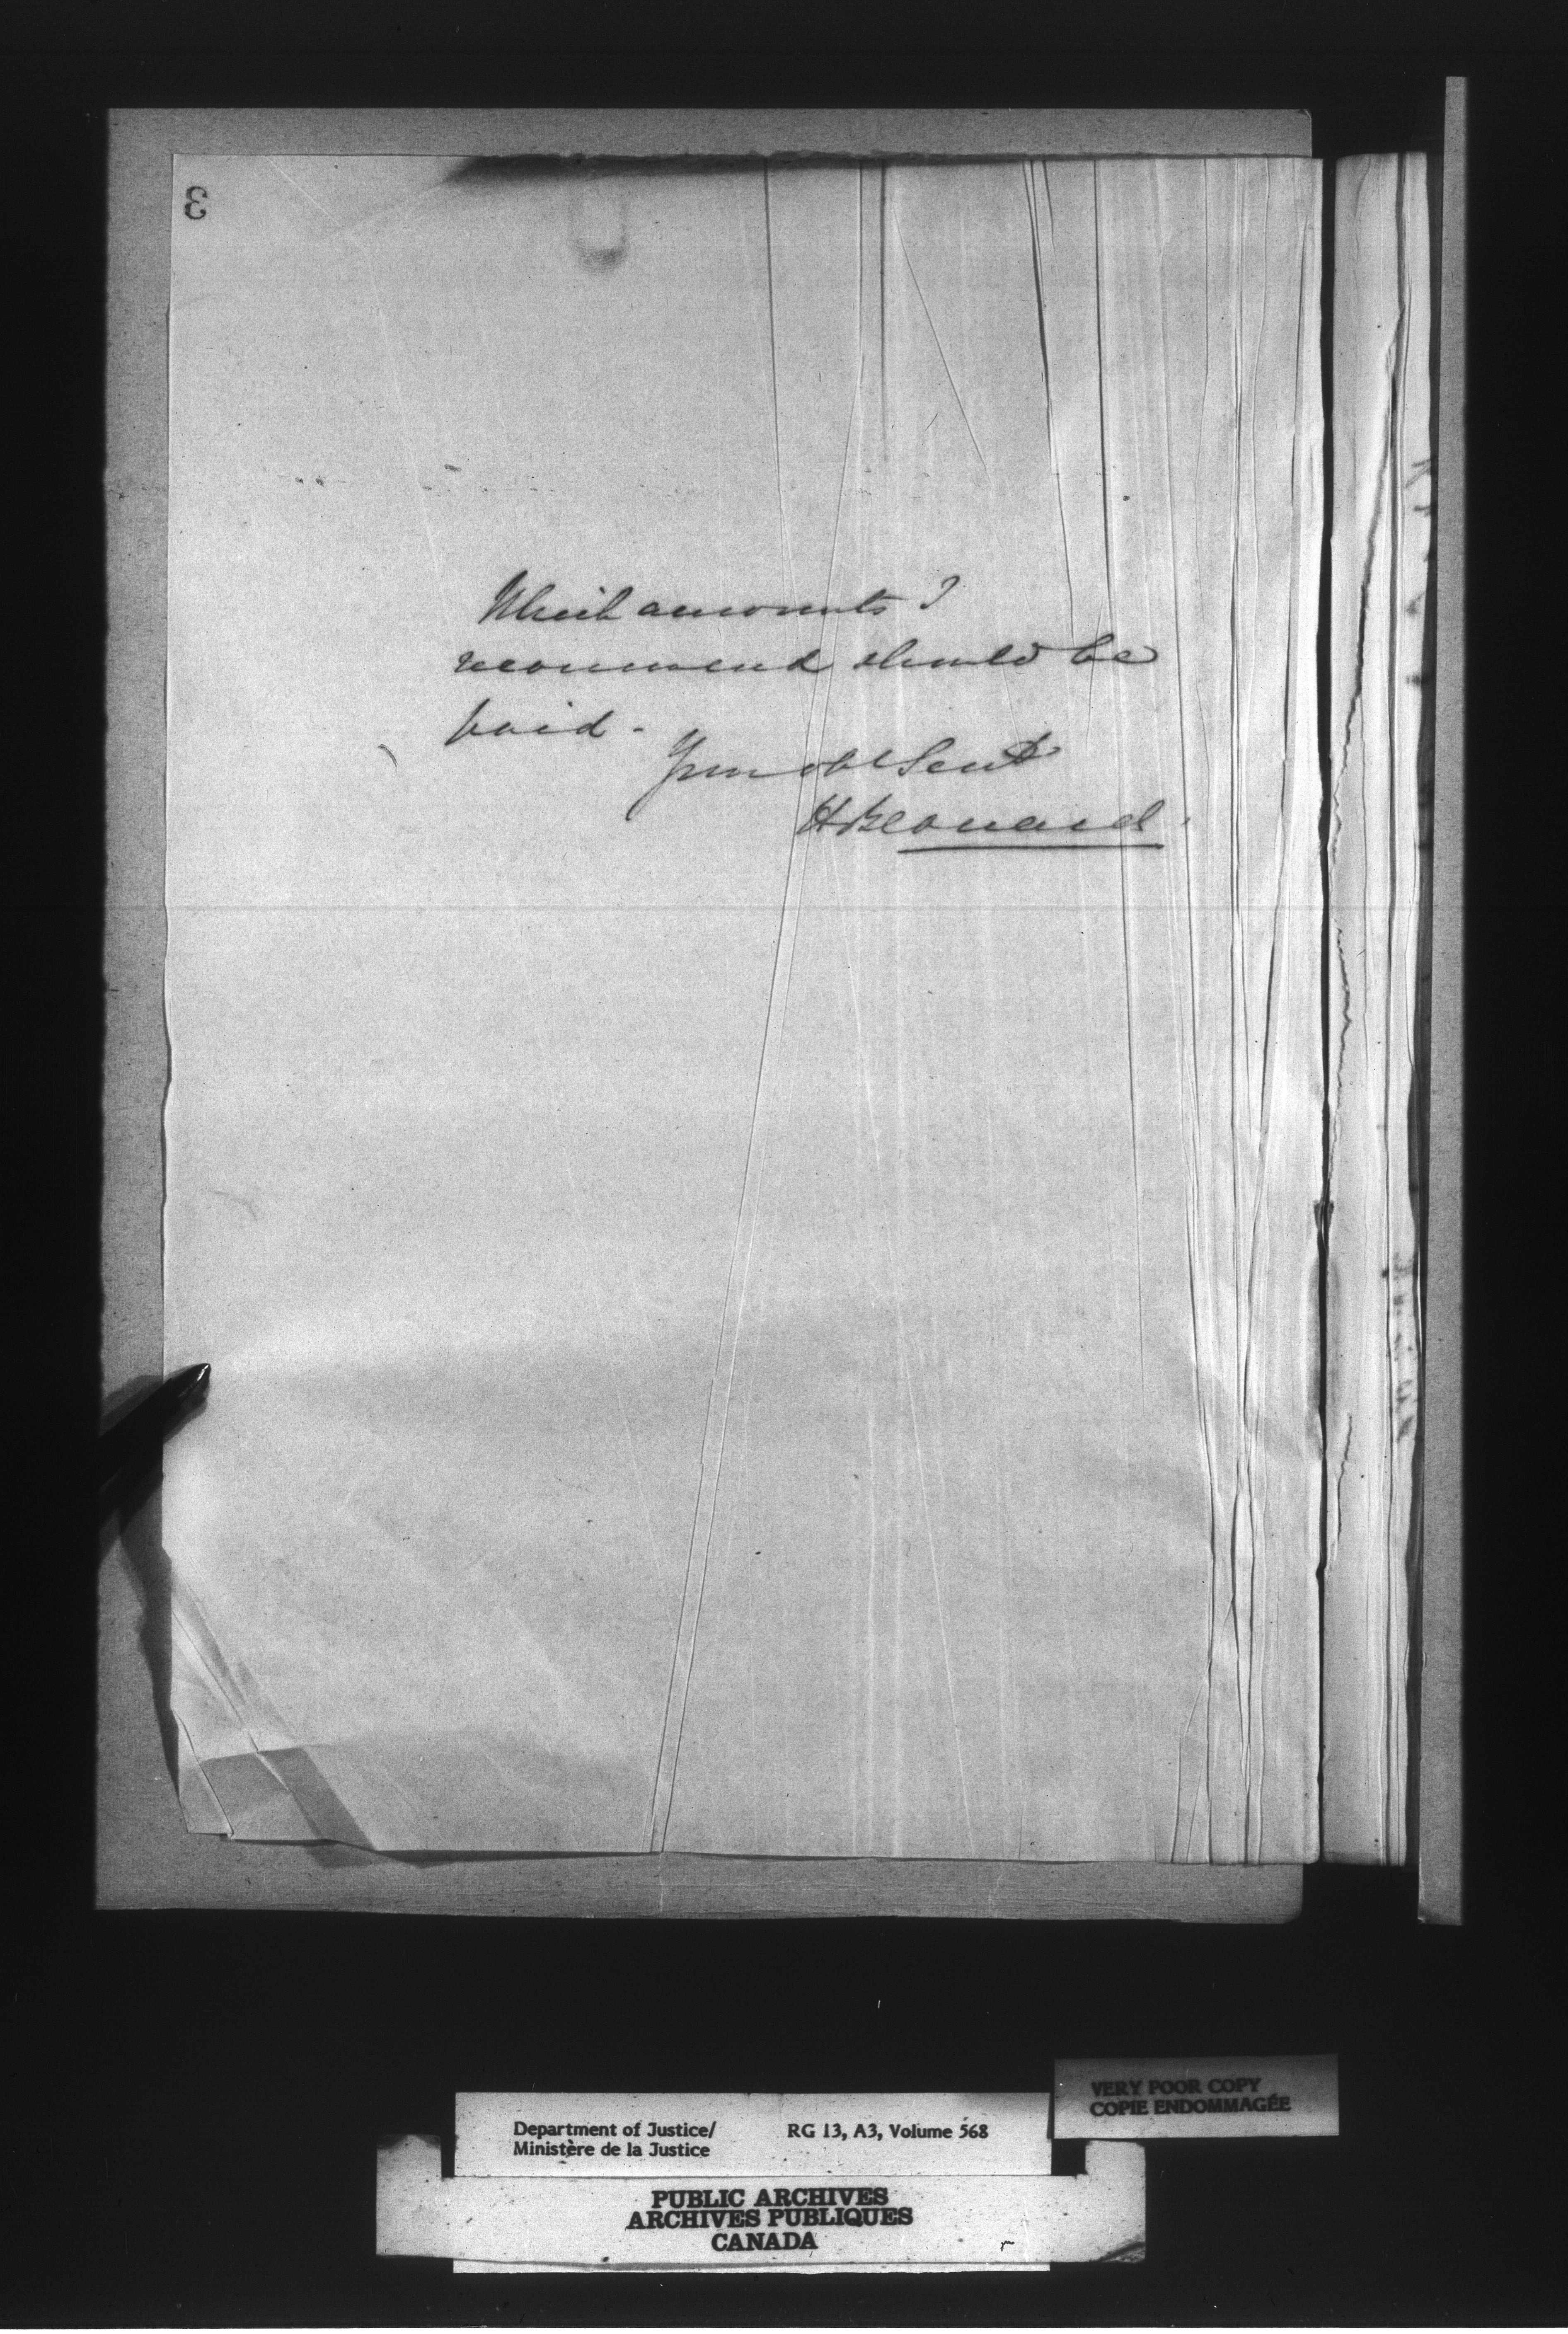 3
Which amounts I
recommend should be
paid.
Your obt Servt
H Bernard.
VERY POOR COPY
COPIE ENDOMMAGÉE
Department of Justice/ RG 13, A3, Volume 568
Ministère de la Justice
PUBLIC ARCHIVES
ARCHIVES PUBLIQUES
CANADA